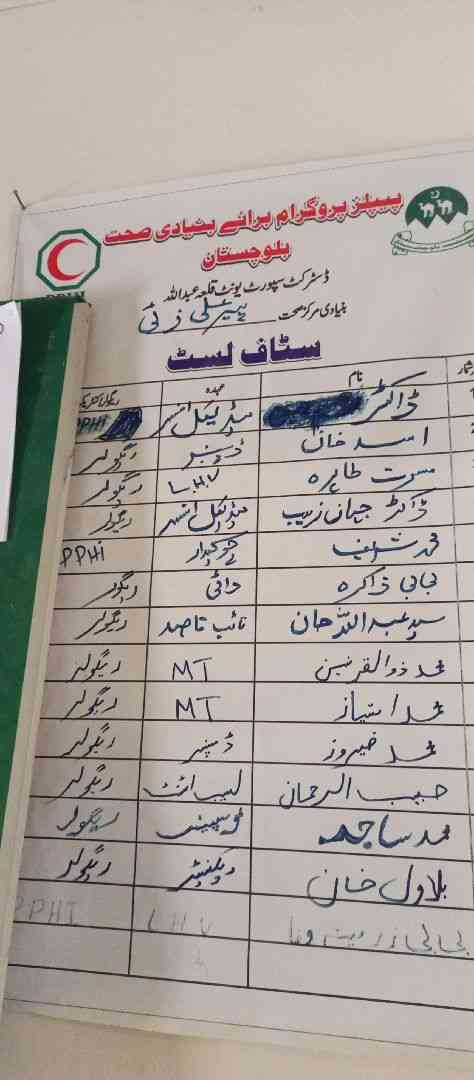 پیپلز پروگرام برائے بنیادی صحت
بلوچستان
ڈسٹرکٹ سپورٹ یونٹ قلعہ عبداللہ
بنیادی مرکز صحت
سٹاف لسٹ
نام عہدہ
ڈاکٹر میڈیکل آفسر PPHI
اسد خان ڈسپنسر ریگولر
مسرت طاہرہ LHV ریگولر
ڈاکٹر جہان زیب میڈیکل آفسر ریگولر
محمد شریف چوکیدار PPHi
بی بی ذاکرہ دائی ریگولر
سید عبداللہ جان نائب قاصد ریگولر
محمد ذوالقرنین MT ریگولر
محمد امتیاز MT ریگولر
محمد فیروز ڈسپنسر ریگولر
حبیب الرحمان ریگولر
محمد ساجد ریگولر
بلاول خان ویکسنیٹر ریگولر
بی بی LHV PPHI